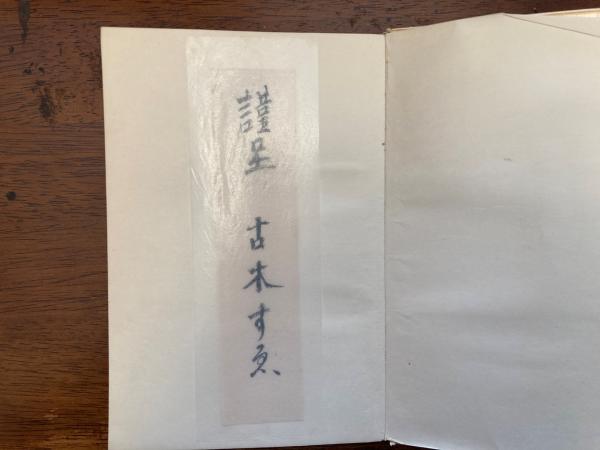 謹呈 古木すゑ